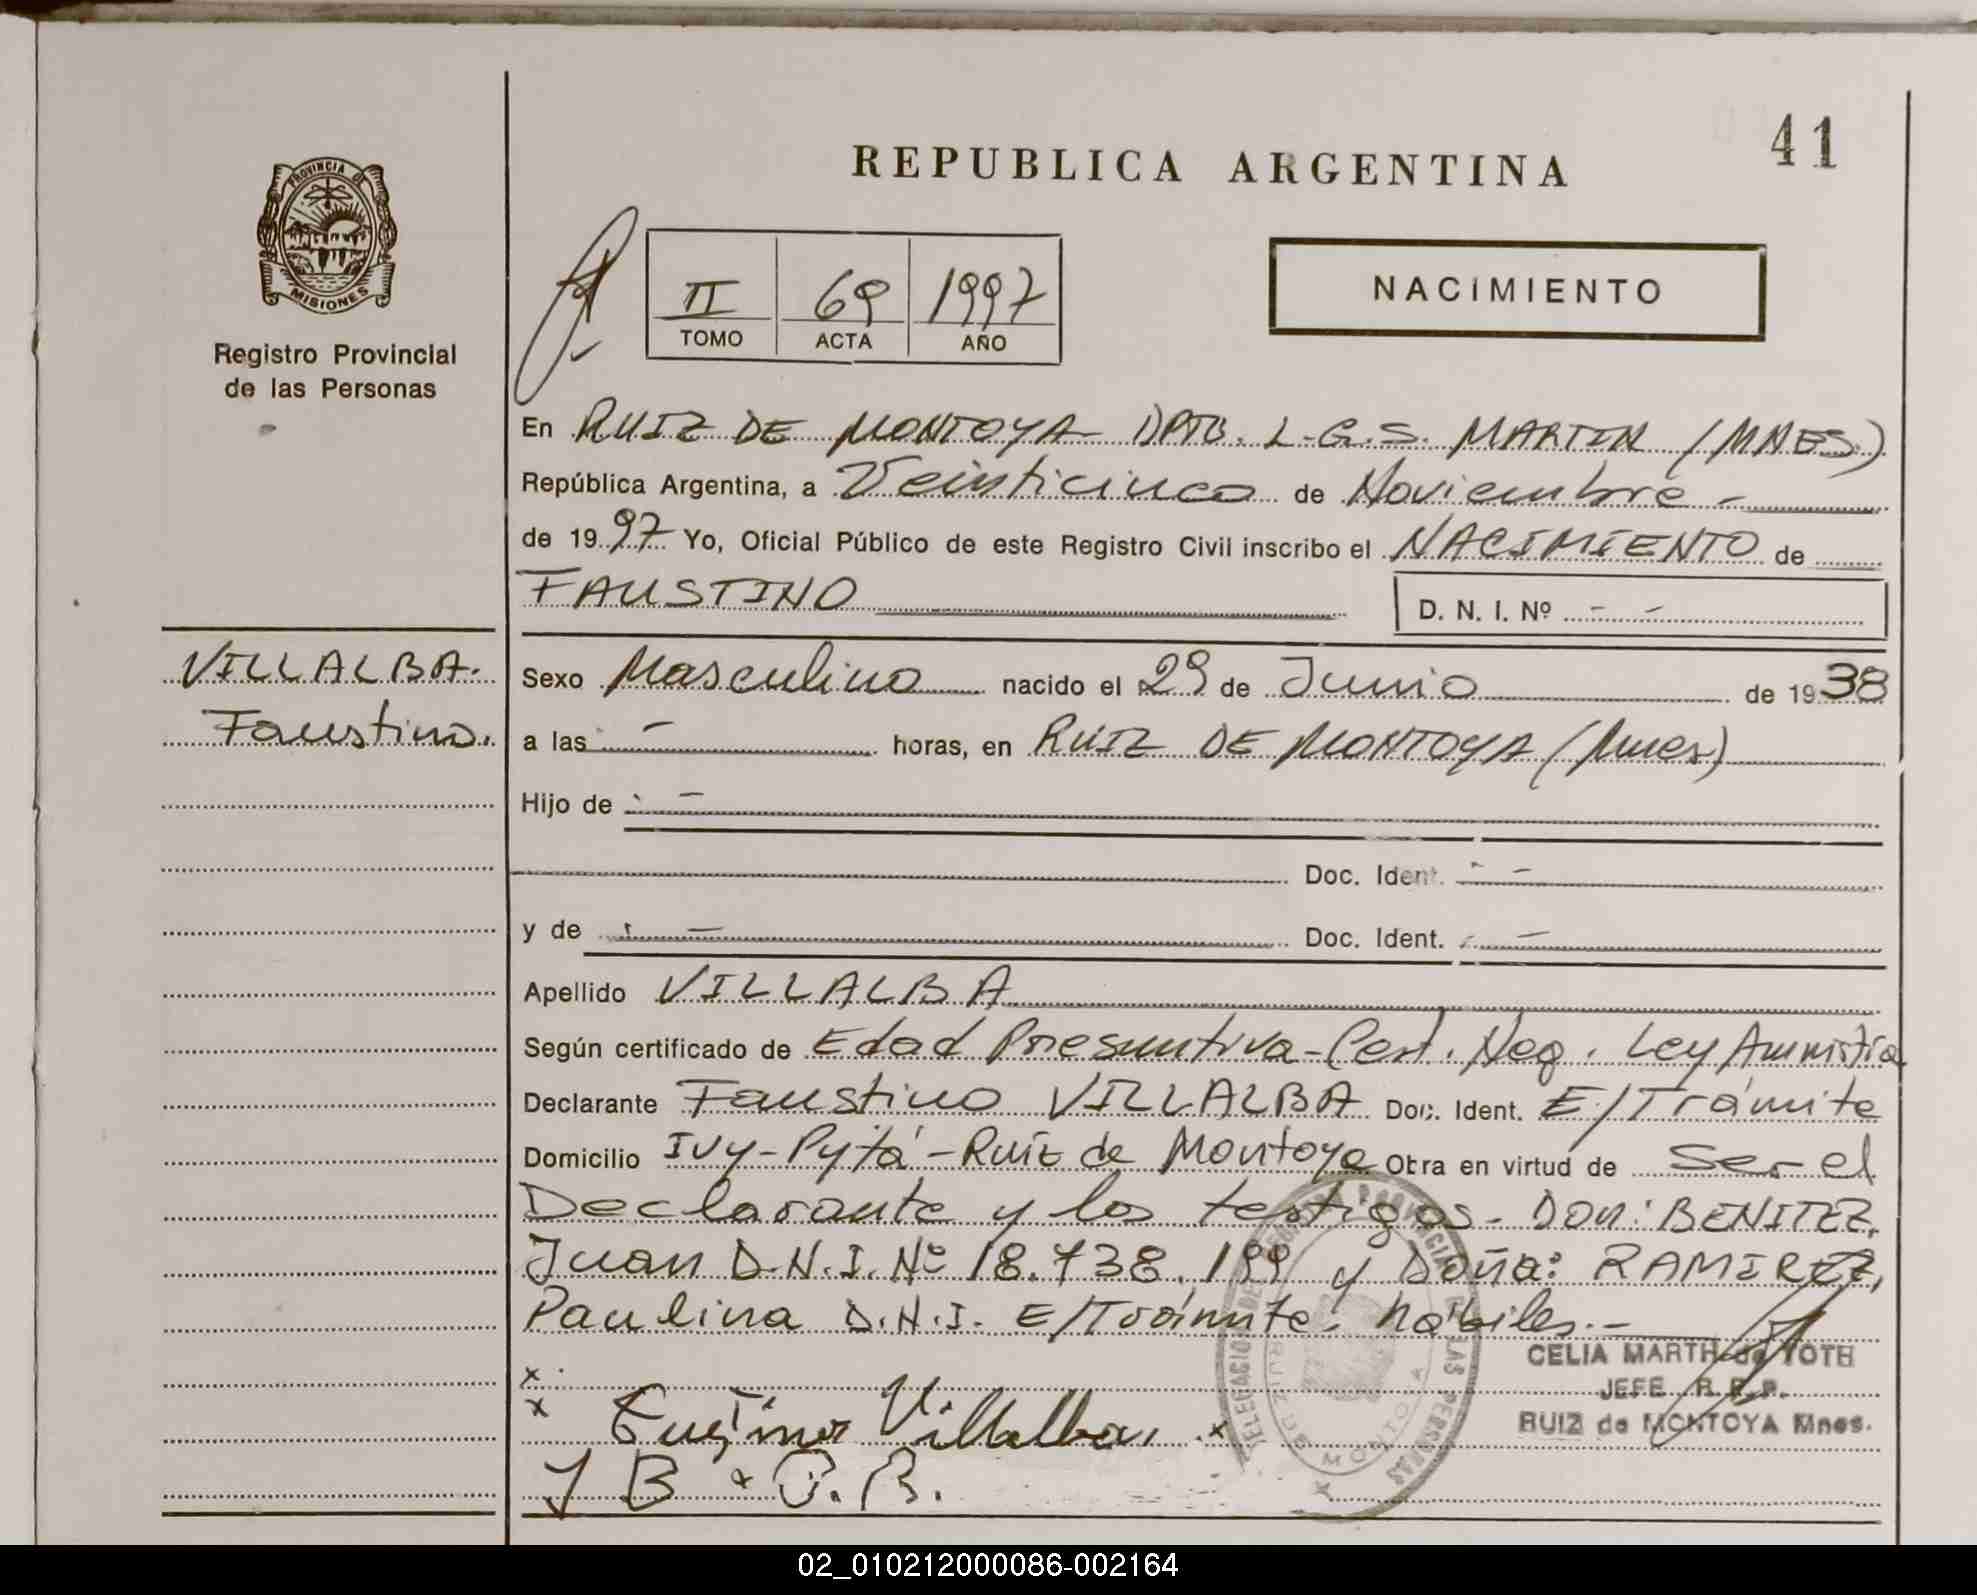 41
REPUBLICA ARGENTINA
PROVINCIA DE
MISIONES
Registro Provincial
de las Personas
II 69 1997
TOMO ACTA AÑO
NACIMIENTO
En RUIZ DE MONTOYA DPTO. L.G.S. MARTIN (MNES)
República Argentina, a Veinticinco de Noviembre -
de 1997 Yo, Oficial Público de este Registro Civil inscribo el NACIMIENTO de
FAUSTINO
D. N. I. Nº - -
VILLALBA.
Faustino.
Sexo Masculino nacido el 29 de Junio de 1938
a las - horas, en RUIZ DE MONTOYA (Mnes)
Hijo de -
Doc. Ident. -
y de - Doc. Ident. -
Apellido VILLALBA
Según certificado de Edad Presuntiva-Cert. Neg. Ley Amnistia
Declarante Faustino VILLALBA Doc. Ident. E/Trámite
Domicilio Ivy-Pytá-Ruiz de Montoya Obra en virtud de ser el
Declarante y los testigos- DON: BENITEZ,
Juan D.N.I. Nº 18.738.199 y Doña: RAMIREZ,
Paulina D.N.I. E/Trámite, hábiles.-
CELIA MARTH de TOTH
JEFE R.P.P.
RUIZ de MONTOYA Mnes.
x
x Fustino Villalba. x
J B x P. R.
DELEGACION DEL REGISTRO PROVINCIAL DE LAS PERSONAS
RUIZ DE MONTOYA
02_010212000086-002164